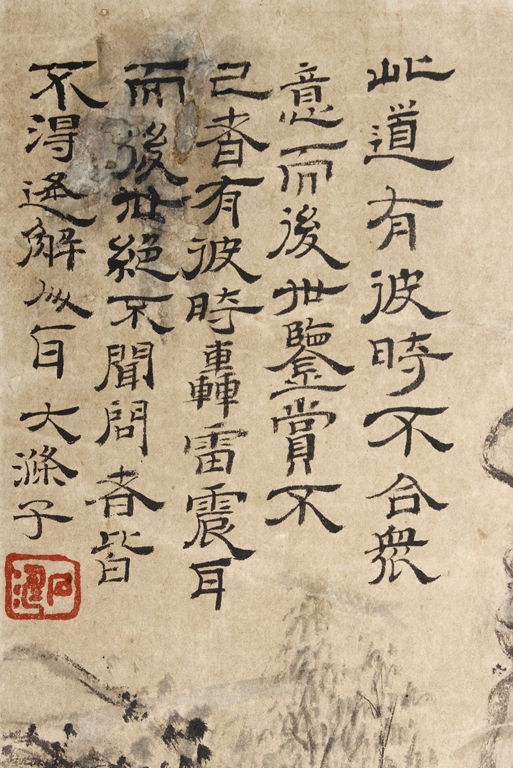 此道有彼時不合衆
意而後世鑒賞不
已者有彼時轟雷震耳
而後世絕不聞問者皆
不得逢解人耳大滌子
石濤